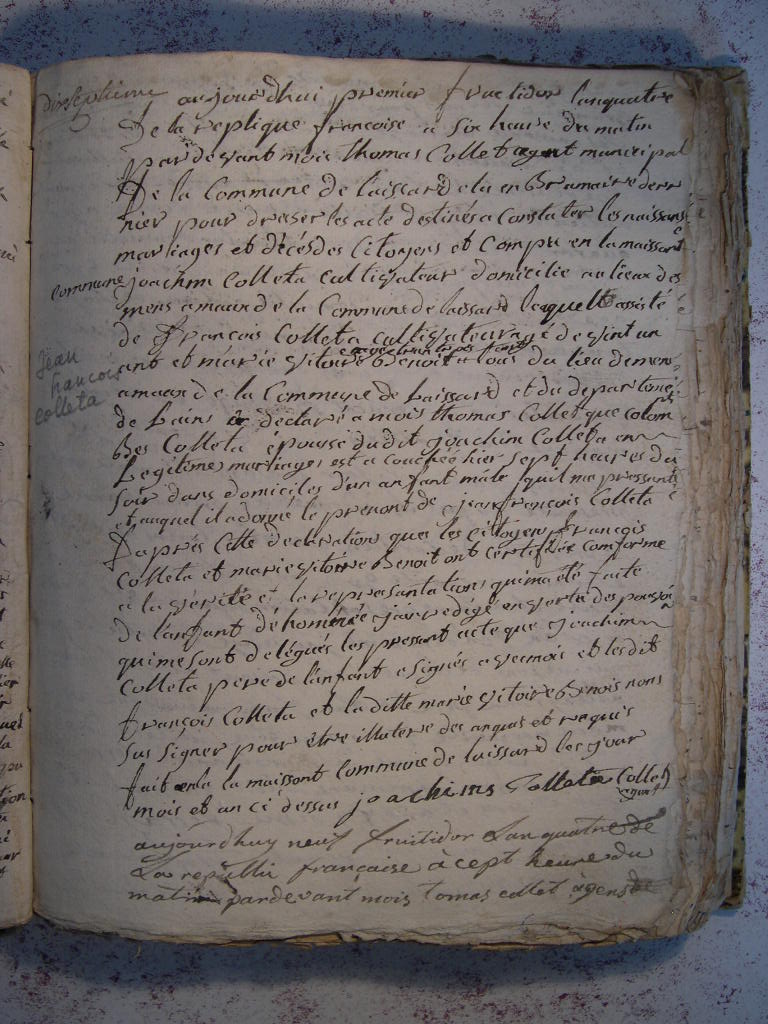 dixseptieme
aujourdhui premier fructidor lanquatre
De la replique francoise a Six heure du matin
pardevant mois thomas Collet agent municipal
De la Commune de Laissard elu en Brumaire derr
nier pour dresser les acte destinés a Constater les naissans
mariages et décés des Citoyens et Compru en la maissont
commune joachim Colleta cultivateur domicilie au lieux des
mens amaur de la Commune de laissard lequelle assisté
de françois Colleta cultivateur agé de vint un
ant et marie vitoire Benoit tous du lieu demon
amaur de la Commune de Laissard et du departemé
de Lains a declaré a mois thomas Collet que colom
Bes Colleta épouse dudit joachim Colleta en
Legitime mariages est a couchéé hier sept heures du
soir dans domiciles d'un anfant mâle quil ma pressanté
et auquel il a donné le prenont de jeanfrançois Colleta
Daprés Cette declaration que les Citoyen françois
Colleta et marie vitoire Benoit ont certifiée comforme
a la vérité et la represantation qui ma eté faite
De l'anfant dénoméé jai redigé en vertu des pouvoi
qui me sont delégués les pressant acte que joachim
Colleta pere de l'anfant a signés avec mois et les dit
françois Colleta et laditte marie vitoire Benois nons
sus signer pour être illutere des anquis et requis
fait en la maissont Commune de laissard les jour
mois et an ci dessus joachims Colleta Collet
agent
Jean
francois
colleta
aujourdhuy neuf fruitidor Lan quatre de
La republi française a cept heure du
matin pardevant mois tomas collet agens de